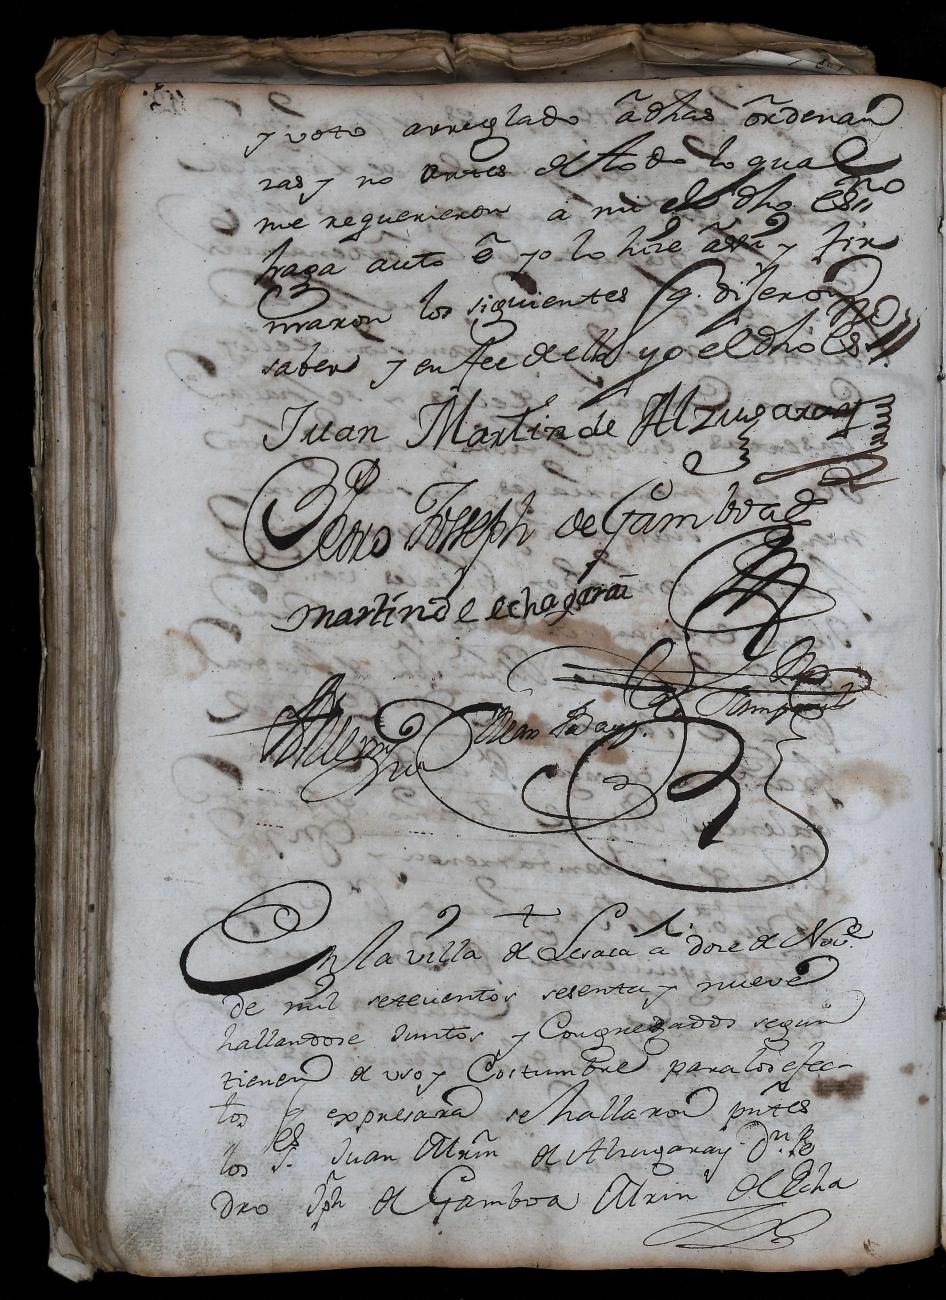 y voto arreglado a dhas ordenan
zas y no antes de todo lo qual
me requerieron a mi el dho Essno
haga auto e yo lo hize assi y fir
maron los siguientes q. dijeron
saber y en fee de ello yo el dho Essno
Juan Martin de Alzugaray
Pedro Joseph de Gamboa
martin de echagarai
En la villa de Lesaca a doze de Nove
de mil setecientos sesenta y nueve
hallandose Juntos y Congregados segun
tienen de uso y Costumbre para los efec-
tos q expresara se hallaron pntes
los Ses. Juan Mrin de Alzugaray Dn. Pe
dro Jph de Gamboa Mrin de Echa